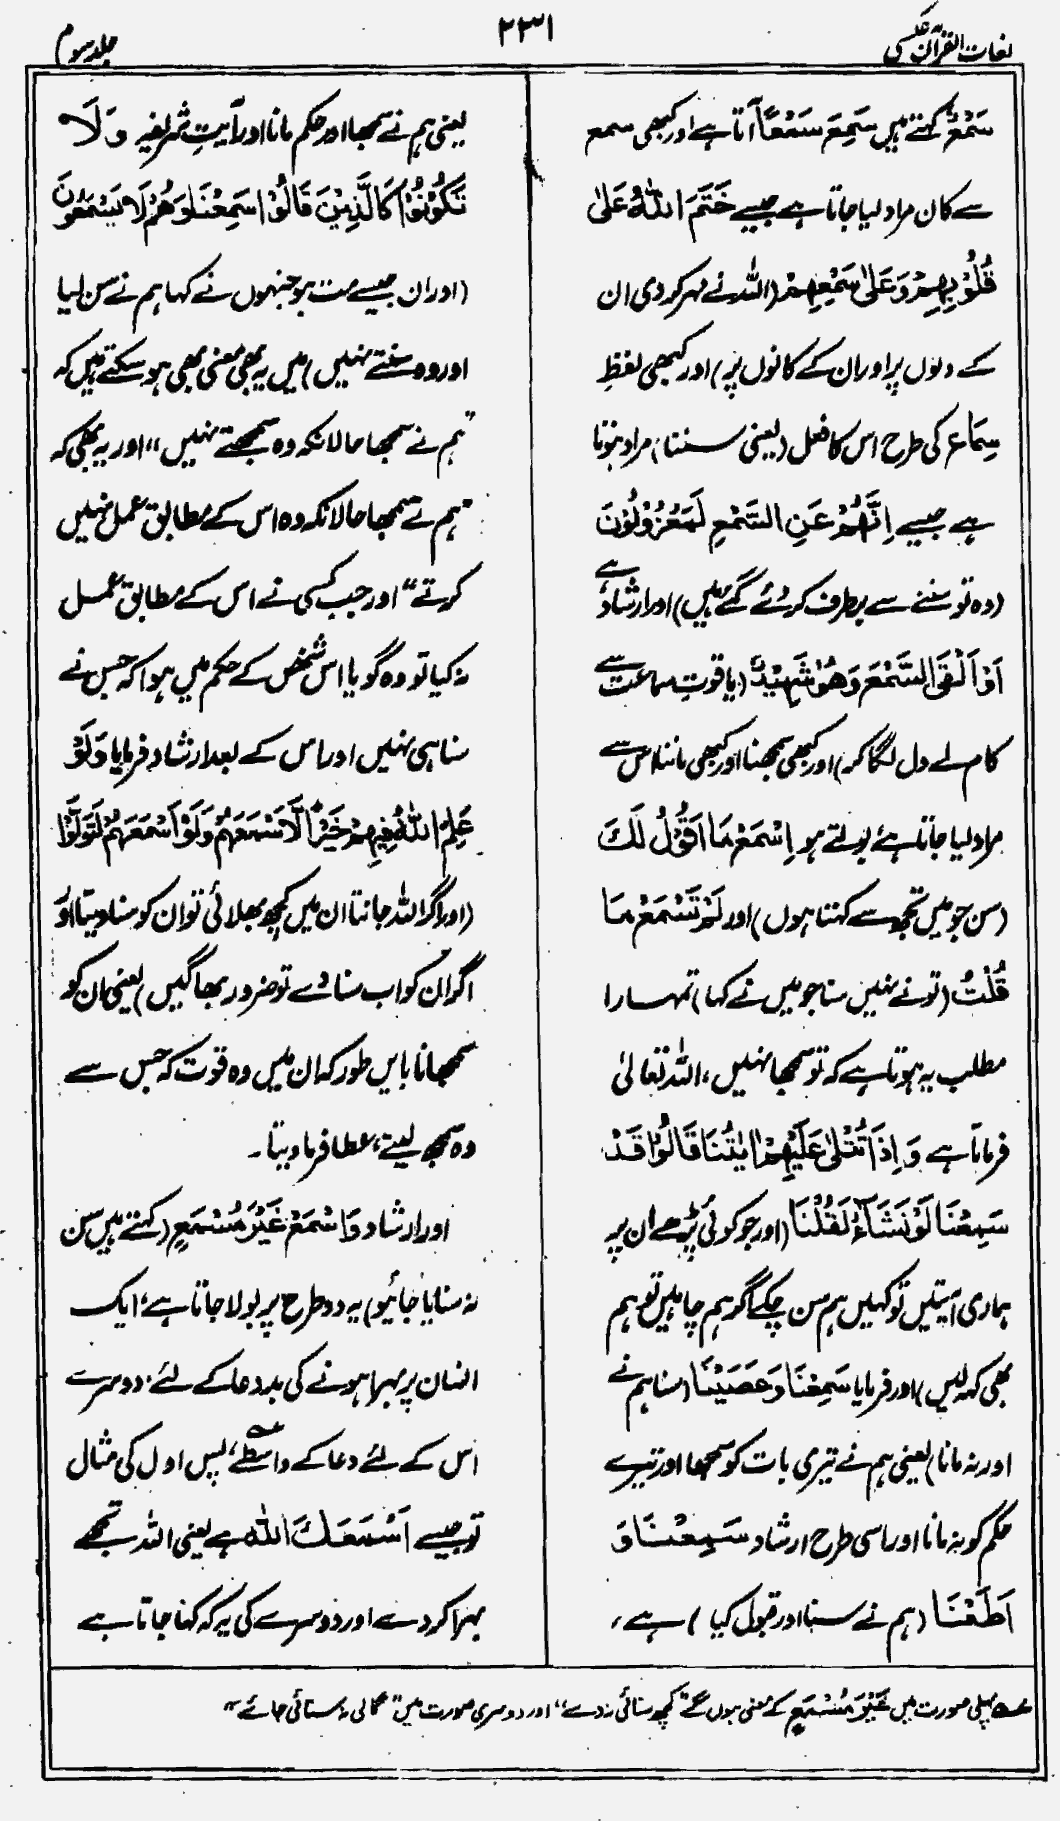 لغات القرآن عکسی
۲۳۱
جلد سوم
سَمْعٌ کہتے ہیں سَمِعَ سَمْعًا آتا ہے اور کبھی سمع
سے کان مراد لیا جاتا ہے جیسے خَتَمَ اللّٰهُ عَلٰی
قُلُوْبِهِمْ وَعَلٰی سَمْعِهِمْ (اللہ نے مہر کر دی ان
کے دلوں پر اور ان کے کانوں پر) اور کبھی لفظِ
سِمَاع کی طرح اس کا فعل (یعنی سننا) مراد ہوتا
ہے جیسے اِنَّهُمْ عَنِ السَّمْعِ لَمَعْزُوْلُوْنَ
(وہ تو سننے سے برطرف کر دئے گئے ہیں) اور ارشاد ہے
اَوْ اَلْقَی السَّمْعَ وَهُوَ شَهِيْدٌ (یا قوتِ سماعت سے
کام لے دل لگا کر) اور کبھی سمجھنا اور کبھی ماننا اس سے
مراد لیا جاتا ہے بولتے ہو اِسْمَعْ مَا اَقُوْلُ لَكَ
(سن جو میں تجھ سے کہتا ہوں) اور لَمْ تَسْمَعْ مَا
قُلْتُ (تو نے نہیں سنا جو میں نے کہا) تمہارا
مطلب یہ ہوتا ہے کہ تو سمجھا نہیں، اللہ تعالیٰ
فرماتا ہے وَاِذَا تُتْلٰی عَلَيْهِمْ اٰيٰتُنَا قَالُوْا قَدْ
سَمِعْنَا لَوْ نَشَآءُ لَقُلْنَا (اور جو کوئی پڑھے ان پر
ہماری آیتیں تو کہیں ہم سن چکے اگر ہم چاہیں تو ہم
بھی کہہ لیں) اور فرمایا سَمِعْنَا وَعَصَيْنَا (سنا ہم نے
اور نہ مانا) یعنی ہم نے تیری بات کو سمجھا اور تیرے
حکم کو نہ مانا اور اسی طرح ارشاد سَمِعْنَا وَ
اَطَعْنَا (ہم نے سنا اور قبول کیا) ہے،
یعنی ہم نے سمجھا اور حکم مانا اور آیتِ شریفہ وَلَا
تَكُوْنُوْا كَالَّذِيْنَ قَالُوْا سَمِعْنَا وَهُمْ لَا يَسْمَعُوْنَ
(اور ان جیسے مت ہو جنہوں نے کہا ہم نے سن لیا
اور وہ سنتے نہیں) میں یہ بھی معنی بھی ہو سکتے ہیں کہ
"ہم نے سمجھا حالانکہ وہ سمجھتے نہیں" اور یہ بھی کہ
"ہم نے سمجھا حالانکہ وہ اس کے مطابق عمل نہیں
کرتے" اور جب کسی نے اس کے مطابق عمل
نہ کیا تو وہ گویا اس شخص کے حکم میں ہوا کہ جس نے
سنا ہی نہیں اور اس کے بعد ارشاد فرمایا وَلَوْ
عَلِمَ اللّٰهُ فِيْهِمْ خَيْرًا لَّاَسْمَعَهُمْ وَلَوْ اَسْمَعَهُمْ لَتَوَلَّوْا
(اور اگر اللہ جانتا ان میں کچھ بھلائی تو ان کو سنا دیتا اور
اگر ان کو اب سنا دے تو ضرور بھاگیں) یعنی ان کو
سمجھاتا بایں طور کہ ان میں وہ قوت کہ جس سے
وہ سمجھ لیتے، عطا فرما دیتا۔
اور ارشاد وَاسْمَعْ غَيْرَ مُسْمَعٍ (کہتے ہیں سن
نہ سنایا جائیو) یہ دو طرح پر بولا جاتا ہے، ایک
انسان پر بہرا ہونے کی بددعا کے لئے، دوسرے
اس کے لئے دعا کے واسطے عہ، پس اول کی مثال
تو جیسے اَسْمَعَكَ اللّٰه ہے یعنی اللہ تجھے
بہرا کر دے اور دوسرے کی یہ کہ کہا جاتا ہے
عہ پہلی صورت میں غَيْرَ مُسْمَعٍ کے معنی ہوں گے "کچھ سنائی نہ دے" اور دوسری صورت میں "گالی نہ سنائی جائے"